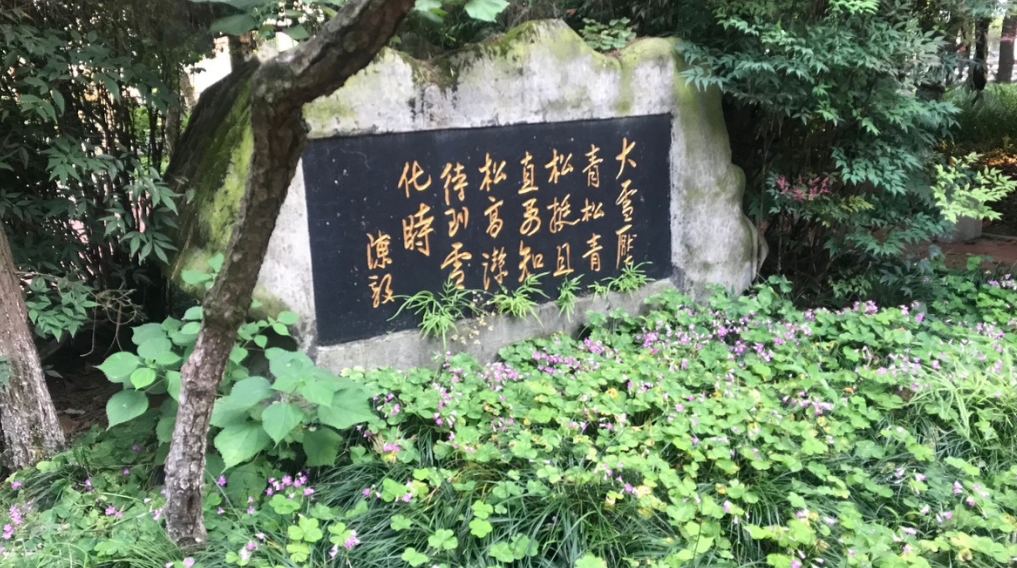 大雪壓
青松青
松挺且
直要知
松高潔
待到雪
化時
陳毅